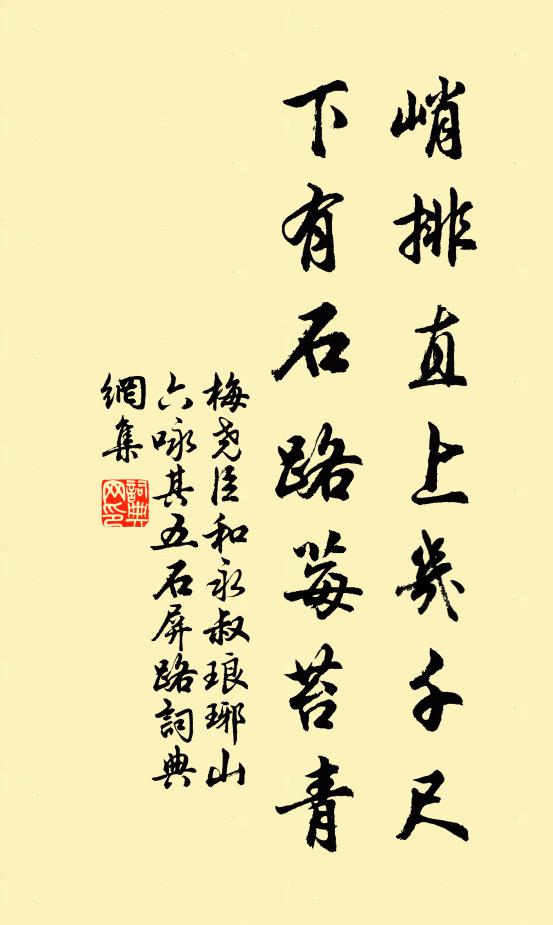 峭排直上幾千尺
下有石路莓苔青
梅堯臣和永叔琅琊山
六咏其五石屏路詞典
網集
詞典網印